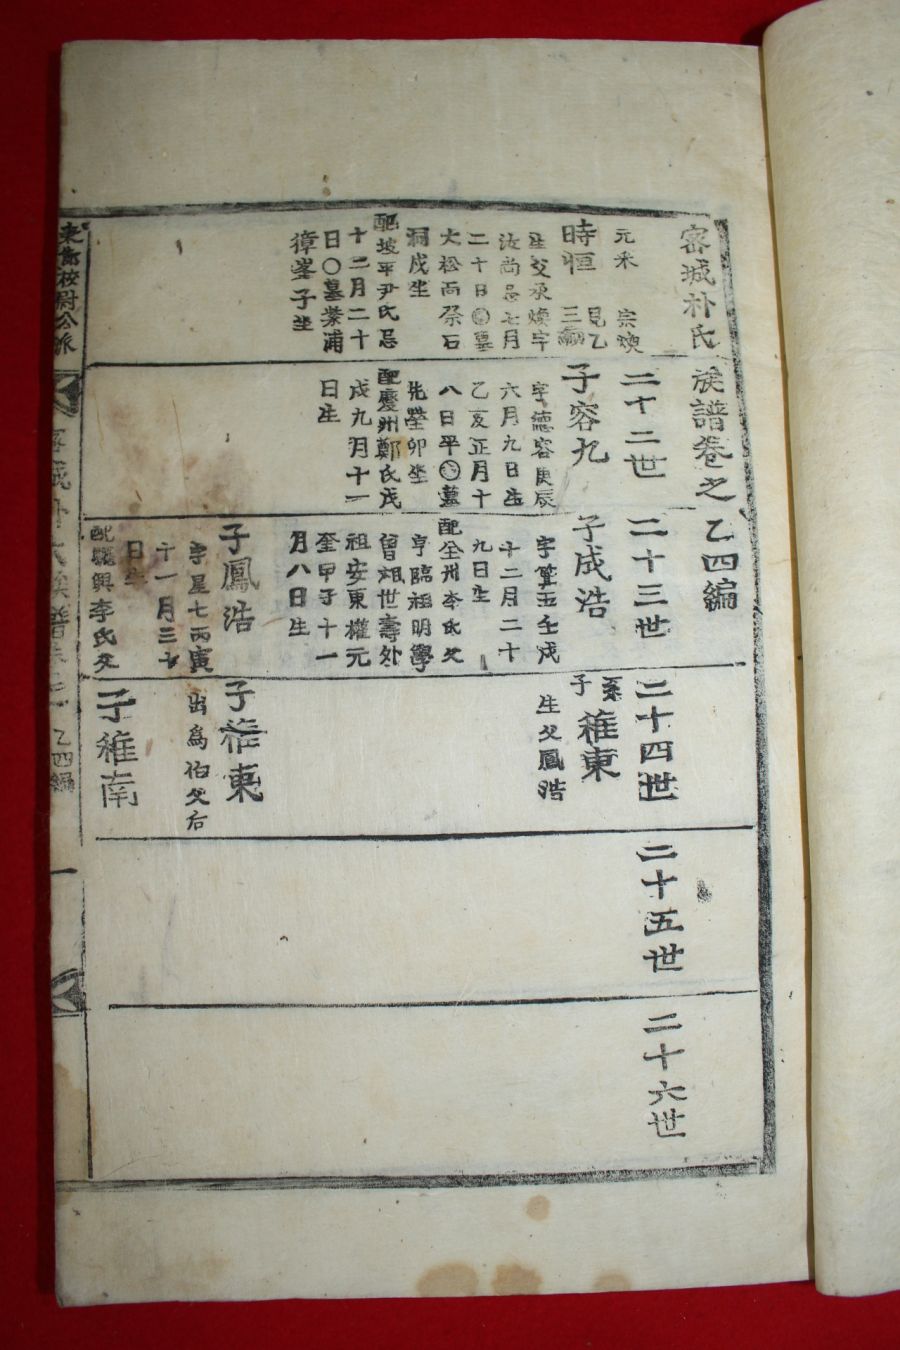 密城朴氏族譜卷之乙四編
元釆 宗煥
時恒 見乙三編
生父承煥字
汝尚忌七月
二十日墓
大松雨祭石
洞戌坐
配坡平尹氏忌
十二月二十
日〇墓業浦
獐峯子坐
二十二世
子容九
字德容庚辰
六月九日生
乙亥正月十
八日卒〇墓
先塋卯坐
配慶州鄭氏戊
戌九月十一
日生
二十三世
子成浩
字箕玉壬戌
十二月二十
九日生
配全州李氏父
亨臨祖明學
曾祖世壽外
祖安東權元
奎甲子十一
月八日生
子鳳浩
字星七丙寅
十一月三十
日生
配驪興李氏父
二十四世
系子 稚東
生父鳳浩
子稚東
出爲伯父后
子稚南
二十五世
二十六世
校尉公派
密城朴氏族譜卷之 乙四編 一